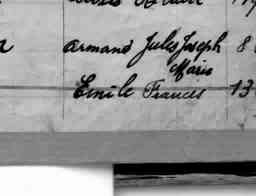 Armand Jules Joseph 8
Marie
Emile Frances 13